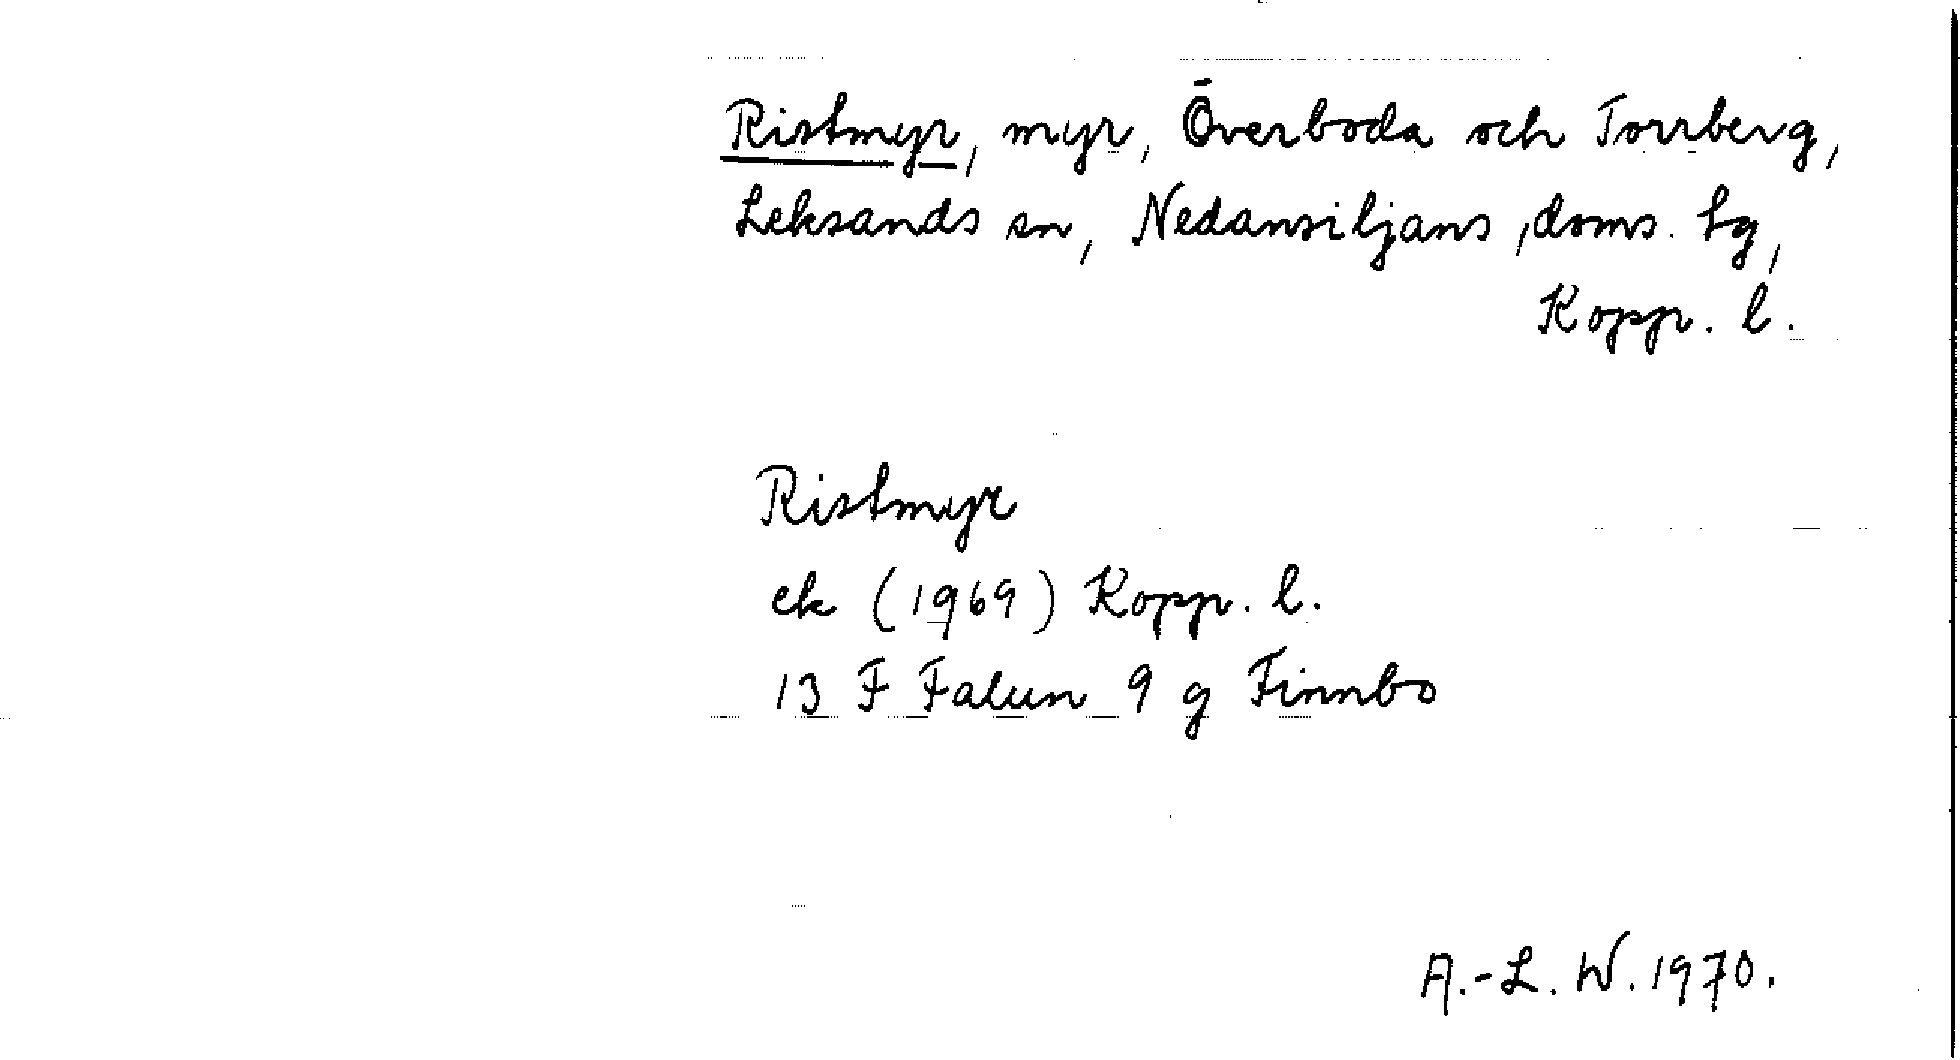 Ristmyr, myr, Överboda och Torrberg,
Leksands sn, Nedansiljans ,doms. tg,
Kopp. l.
Ristmyr
ek (1969) Kopp. l.
13 F Falun 9 g Finnbo
A.-L. W. 1970.